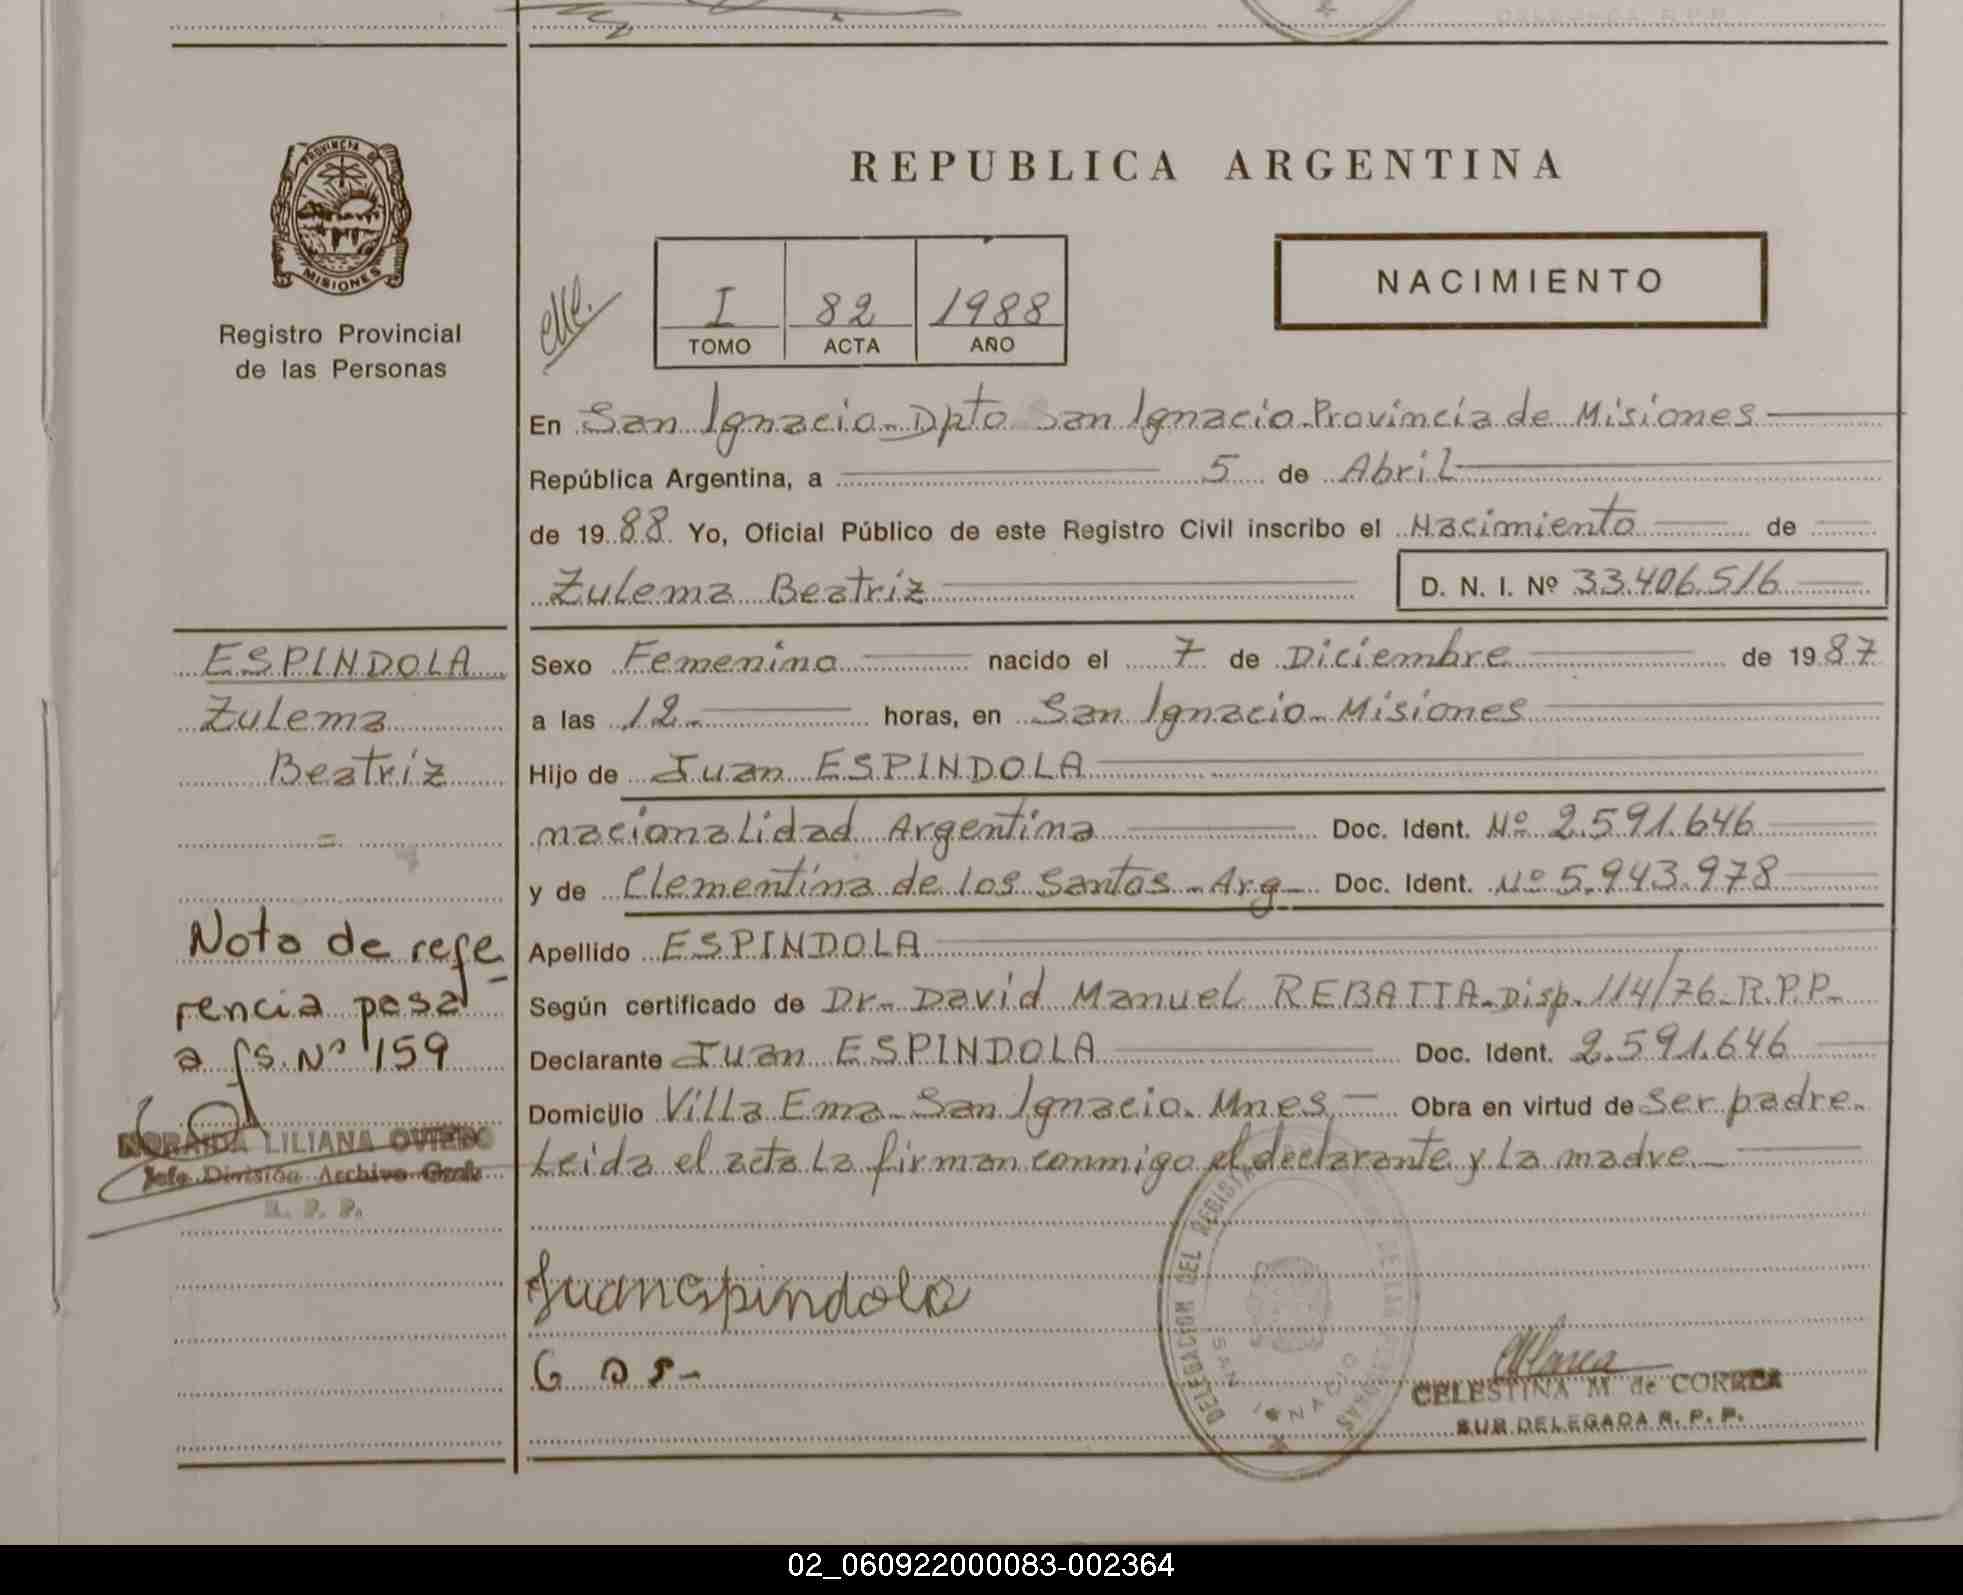 PROVINCIA DE
MISIONES
Registro Provincial
de las Personas
REPUBLICA ARGENTINA
NACIMIENTO
I 82 1988
TOMO ACTA AÑO
En San Ignacio - Dpto San Ignacio - Provincia de Misiones
República Argentina, a 5 de Abril
de 1988 Yo, Oficial Público de este Registro Civil inscribo el Nacimiento de
Zulema Beatriz D. N. I. Nº 33.406.516
ESPINDOLA
Zulema
Beatriz
=
Nota de refe
rencia pasa
a fs. Nº 159
NORAIDA LILIANA OVIEDO
Jefe División Archivo Gral.
R. P. P.
Sexo Femenino nacido el 7 de Diciembre de 1987
a las 12 horas, en San Ignacio - Misiones
Hijo de Juan ESPINDOLA
nacionalidad Argentina Doc. Ident. Nº 2.591.646
y de Clementina de los Santos - Arg - Doc. Ident. Nº 5.943.978
Apellido ESPINDOLA
Según certificado de Dr. David Manuel REBATTA - Disp. 114/76 - R.P.P.
Declarante Juan ESPINDOLA Doc. Ident. 2.591.646
Domicilio Villa Ema - San Ignacio - Mnes. - Obra en virtud de ser padre.
Leida el acta la firman conmigo el declarante y la madre -
Juan Espindola
DELEGACION DEL REGISTRO DE LAS PERSONAS
SAN IGNACIO
CELESTINA M de CORREA
SUB DELEGADA R. P. P.
02_060922000083-002364